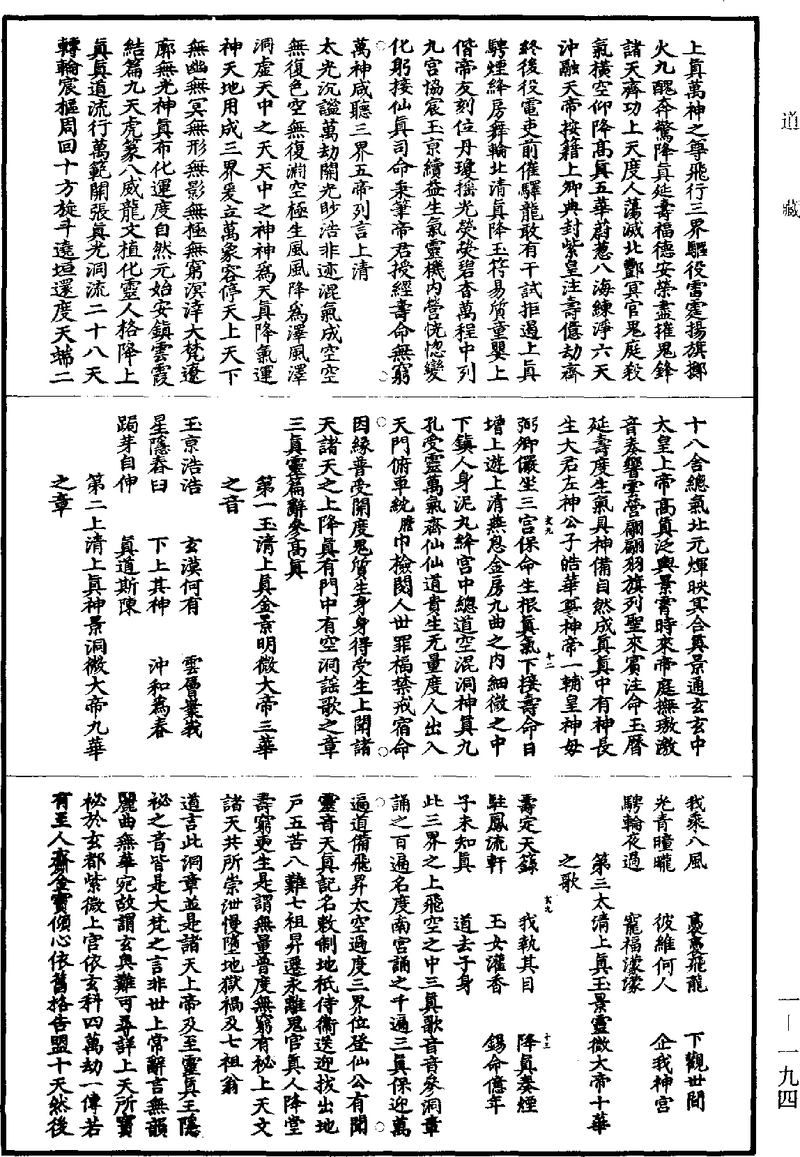 道藏
上真萬神之尊飛行三界驅役雷霆揚旗擲
火九醜奔驚降真延壽福德安榮盡摧鬼鋒
諸天齊功上天度人蕩滅北酆冥官鬼庭殺
氣橫空仰降高真五華蔚蔥八海練淨六天
沖融天帝按籍上卿典封紫皇注壽億劫齊
終後役電吏前催驛龍敢有干試拒遏上真
騁煙絳房舞輪北清真降玉符易質童嬰上
偕帝友刻位丹瓊搖光熒熒碧杳萬程中列
九宮協宸玉京續益生氣靈機內營恍惚變
化躬接仙真司命秉筆帝君授經壽命無窮
萬神咸聽三界五帝列言上清
太光沉謐萬劫開光眇浩非迹混氣成空空
無復色空無復淵空極生風風降為澤風澤
洞虛天中之天天中之神神為天真降氣運
神天地用成三界爰立萬象容停天上天下
無幽無冥無形無影無極無窮溟涬大梵遼
廓無光神真布化運度自然元始安鎮雲霞
結篇九天虎篆八威龍文植化靈人格降上
真真道流行萬範開張真光洞流二十八天
轉輪宸樞周回十方旋斗遶垣還度天端二
十八舍總氣北元煇映冥合真景通玄玄中
太皇上帝高真泛輿景霄時來帝庭撫璈激
音奏響雲營翩翩羽旗列聖來賓注命玉曆
延壽度生氣具神備自然成真真中有神長
生大君左神公子皓華尊神帝一輔皇神母
弼卿儼坐三宮保命生根真氣下接壽命日
增上遊上清燕息金房九曲之內細微之中
下鎮人身泥丸絳宮中總道空混洞神真九
孔受靈萬氣齊仙仙道貴生无量度人出入
天門俯車統幐巾檢閱人世罪福禁戒宿命
因緣普受開度鬼質生身身得受生上聞諸
天諸天之上降真有門中有空洞謠歌之章
三真靈篇辭參高真
第一玉清上真金景明微大帝三華
之音
玉京浩浩　玄漠何有　雲層業峩
星隱春日　下上其神　沖和為春
蹋芽自伸　真道斯陳
第二上清上真神景洞微大帝九華
之章
我乘八風　裊裊飛龍　下觀世間
光青瞳曨　彼維何人　企我神宮
騁輪夜過　寵福濛濛
第三太清上真玉景靈微大帝十華
之歌
壽定天籙　我執其目　降真奏煙
駐鳳流軒　玉女灌香　錫命億年
子未知真　道去子身
此三界之上飛空之中三真歌音音參洞章
誦之百遍名度南宮誦之千遍三真保迎萬
遍道備飛昇太空過度三界位登仙公有聞
靈音天真記名敕制地祇侍衛送迎拔出地
戶五苦八難七祖昇遷永離鬼官真人降堂
壽窮更生是謂無量普度無窮有祕上天文
諸天共所崇泄慢墮地獄禍及七祖翁
道言此洞章並是諸天上帝及至靈真王隱
祕之音皆是大梵之言非世上常辭言無韻
麗曲無華宛故謂玄奧難可尋詳上天所寶
祕於玄都紫微上宮依玄科四萬劫一傳若
有至人齎金寶傾心依舊格告盟十天然後
一－一九四